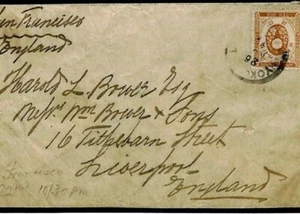 San Francisco
England
Harold L. Bower Esq
Messrs Wm Bower & Sons
16 Tithebarn Street
Liverpool
England